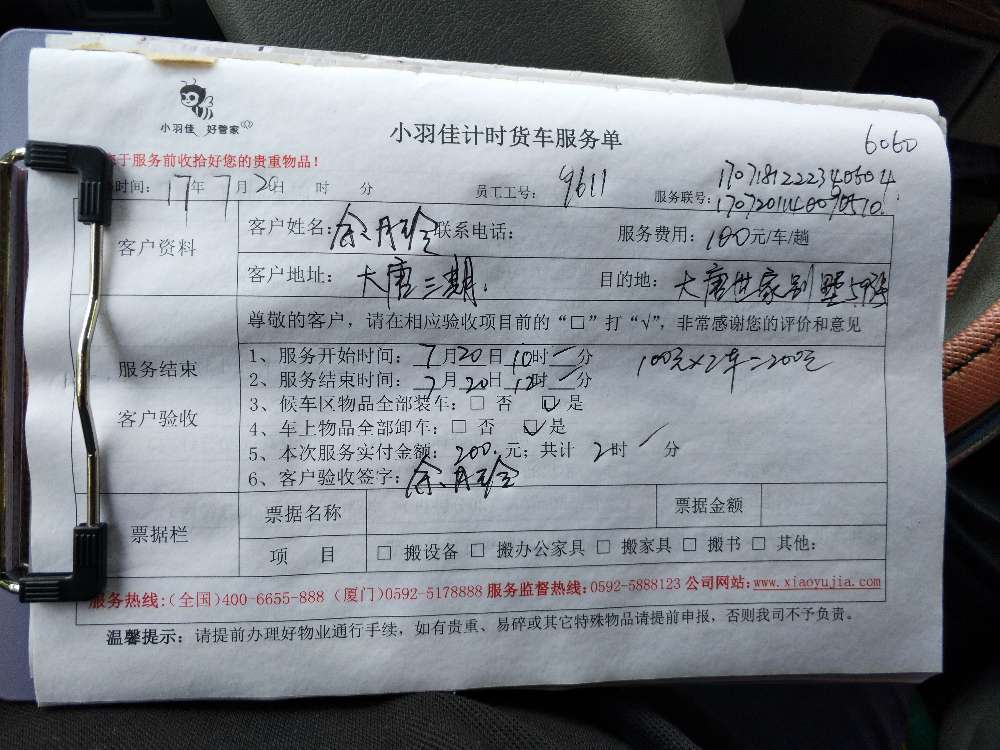 小羽佳 好管家
小羽佳计时货车服务单
6060
于服务前收拾好您的贵重物品！
时间：17年7月20日 时 分 员工工号：9611 服务联号：1707181222340504
1707201140070510.
客户资料
客户姓名：余月珍 联系电话： 服务费用：100元/车/趟
客户地址：大唐三期. 目的地：大唐世家别墅59号
尊敬的客户，请在相应验收项目前的“□”打“√”，非常感谢您的评价和意见
服务结束
客户验收
1、服务开始时间：7月20日10时 分 100元×2车=200元
2、服务结束时间：7月20日12时 分
3、候车区物品全部装车：□ 否 ☑ 是
4、车上物品全部卸车：□ 否 ☑ 是
5、本次服务实付金额：200.元；共计 2时 分
6、客户验收签字：余月珍
票据栏
票据名称 票据金额
项 目 □ 搬设备 □ 搬办公家具 □ 搬家具 □ 搬书 □ 其他：
服务热线：（全国）400-6655-888（厦门）0592-5178888 服务监督热线：0592-5888123 公司网站：www.xiaoyujia.com
温馨提示：请提前办理好物业通行手续，如有贵重、易碎或其它特殊物品请提前申报，否则我司不予负责。